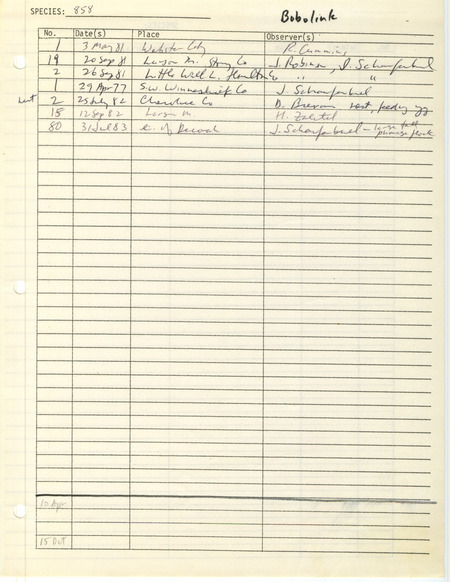 SPECIES: 858 Bobolink
No. Date(s) Place Observer(s)
1 3 May 81 Webster City R. Cummins
19 20 Sep 81 Story Co J. Robinson, J. Schaufenbuel
2 26 Sep 81 Little Wall L. Hamilton Co " "
1 29 Apr 77 S.W. Winneshiek Co J. Schaufenbuel
2 25 July 82 Cherokee Co D. Bierman nest,
15 12 Sep 82 H. Zaletel
80 31 Jul 83 of Decorah J. Schaufenbuel - large fall
flock
10 Apr
15 Oct